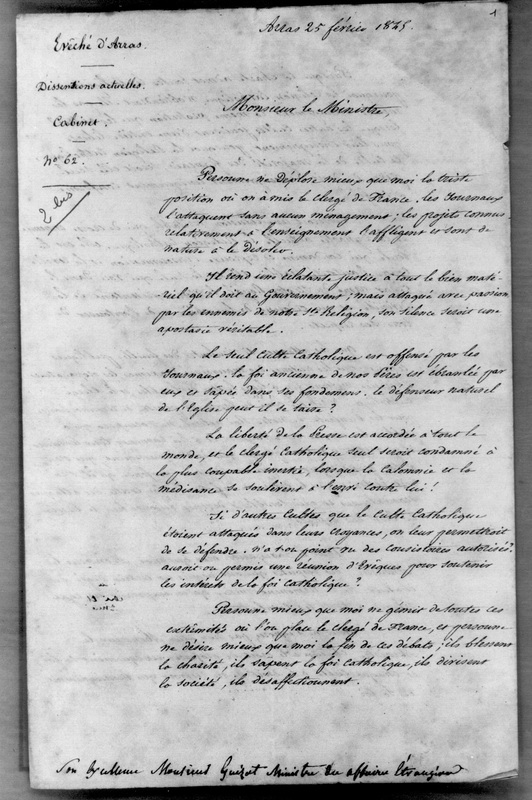 1
Arras 25 février 1845.
Evêché d'Arras.
Dissentions actuelles.
Cabinet.
No 62.
2 bis
Monsieur le Ministre,
Personne ne déplore mieux que moi la triste
position où on a mis le clergé de France. les Journaux
l'attaquent sans aucun ménagement; les projets connus
relativement à l'enseignement l'affligent et sont de
nature à le désoler.
Il rend une éclatante justice à tout le bien maté-
riel qu'il doit au Gouvernement; mais attaqué avec passion
par les ennemis de notre Ste Religion, son silence seroit une
apostasie véritable.
Le seul Culte Catholique est offensé par les
Journaux. la foi ancienne de nos Pères est ebranlée par
eux et sapée dans ses fondemens. le défenseur naturel
de l'Eglise peut il se taire?
La liberté de la Presse est accordée à tout le
monde, et le clergé Catholique seul seroit condamné à
la plus coupable inertie, lorsque la Calomnie et la
médisance se soulèvent à l'envi contre lui!
Si d'autres Cultes que le Culte Catholique
étoient attaqués dans leurs croyances, on leur permettroit
de se défendre. n'a t-on point vu des consistoires autorisés?
auroit on permis une réunion d'Evêques pour soutenir
les intérêts de la foi catholique?
Personne mieux que moi ne gémit de toutes ces
extrémités où l'on place le clergé de France, et personne
ne désire mieux que moi la fin de ces débats; ils blessent
la charité, ils sapent la foi catholique, ils divisent
la société, ils désaffectionnent.
Son Excellence Monsieur Guizot Ministre des affaires Etrangères